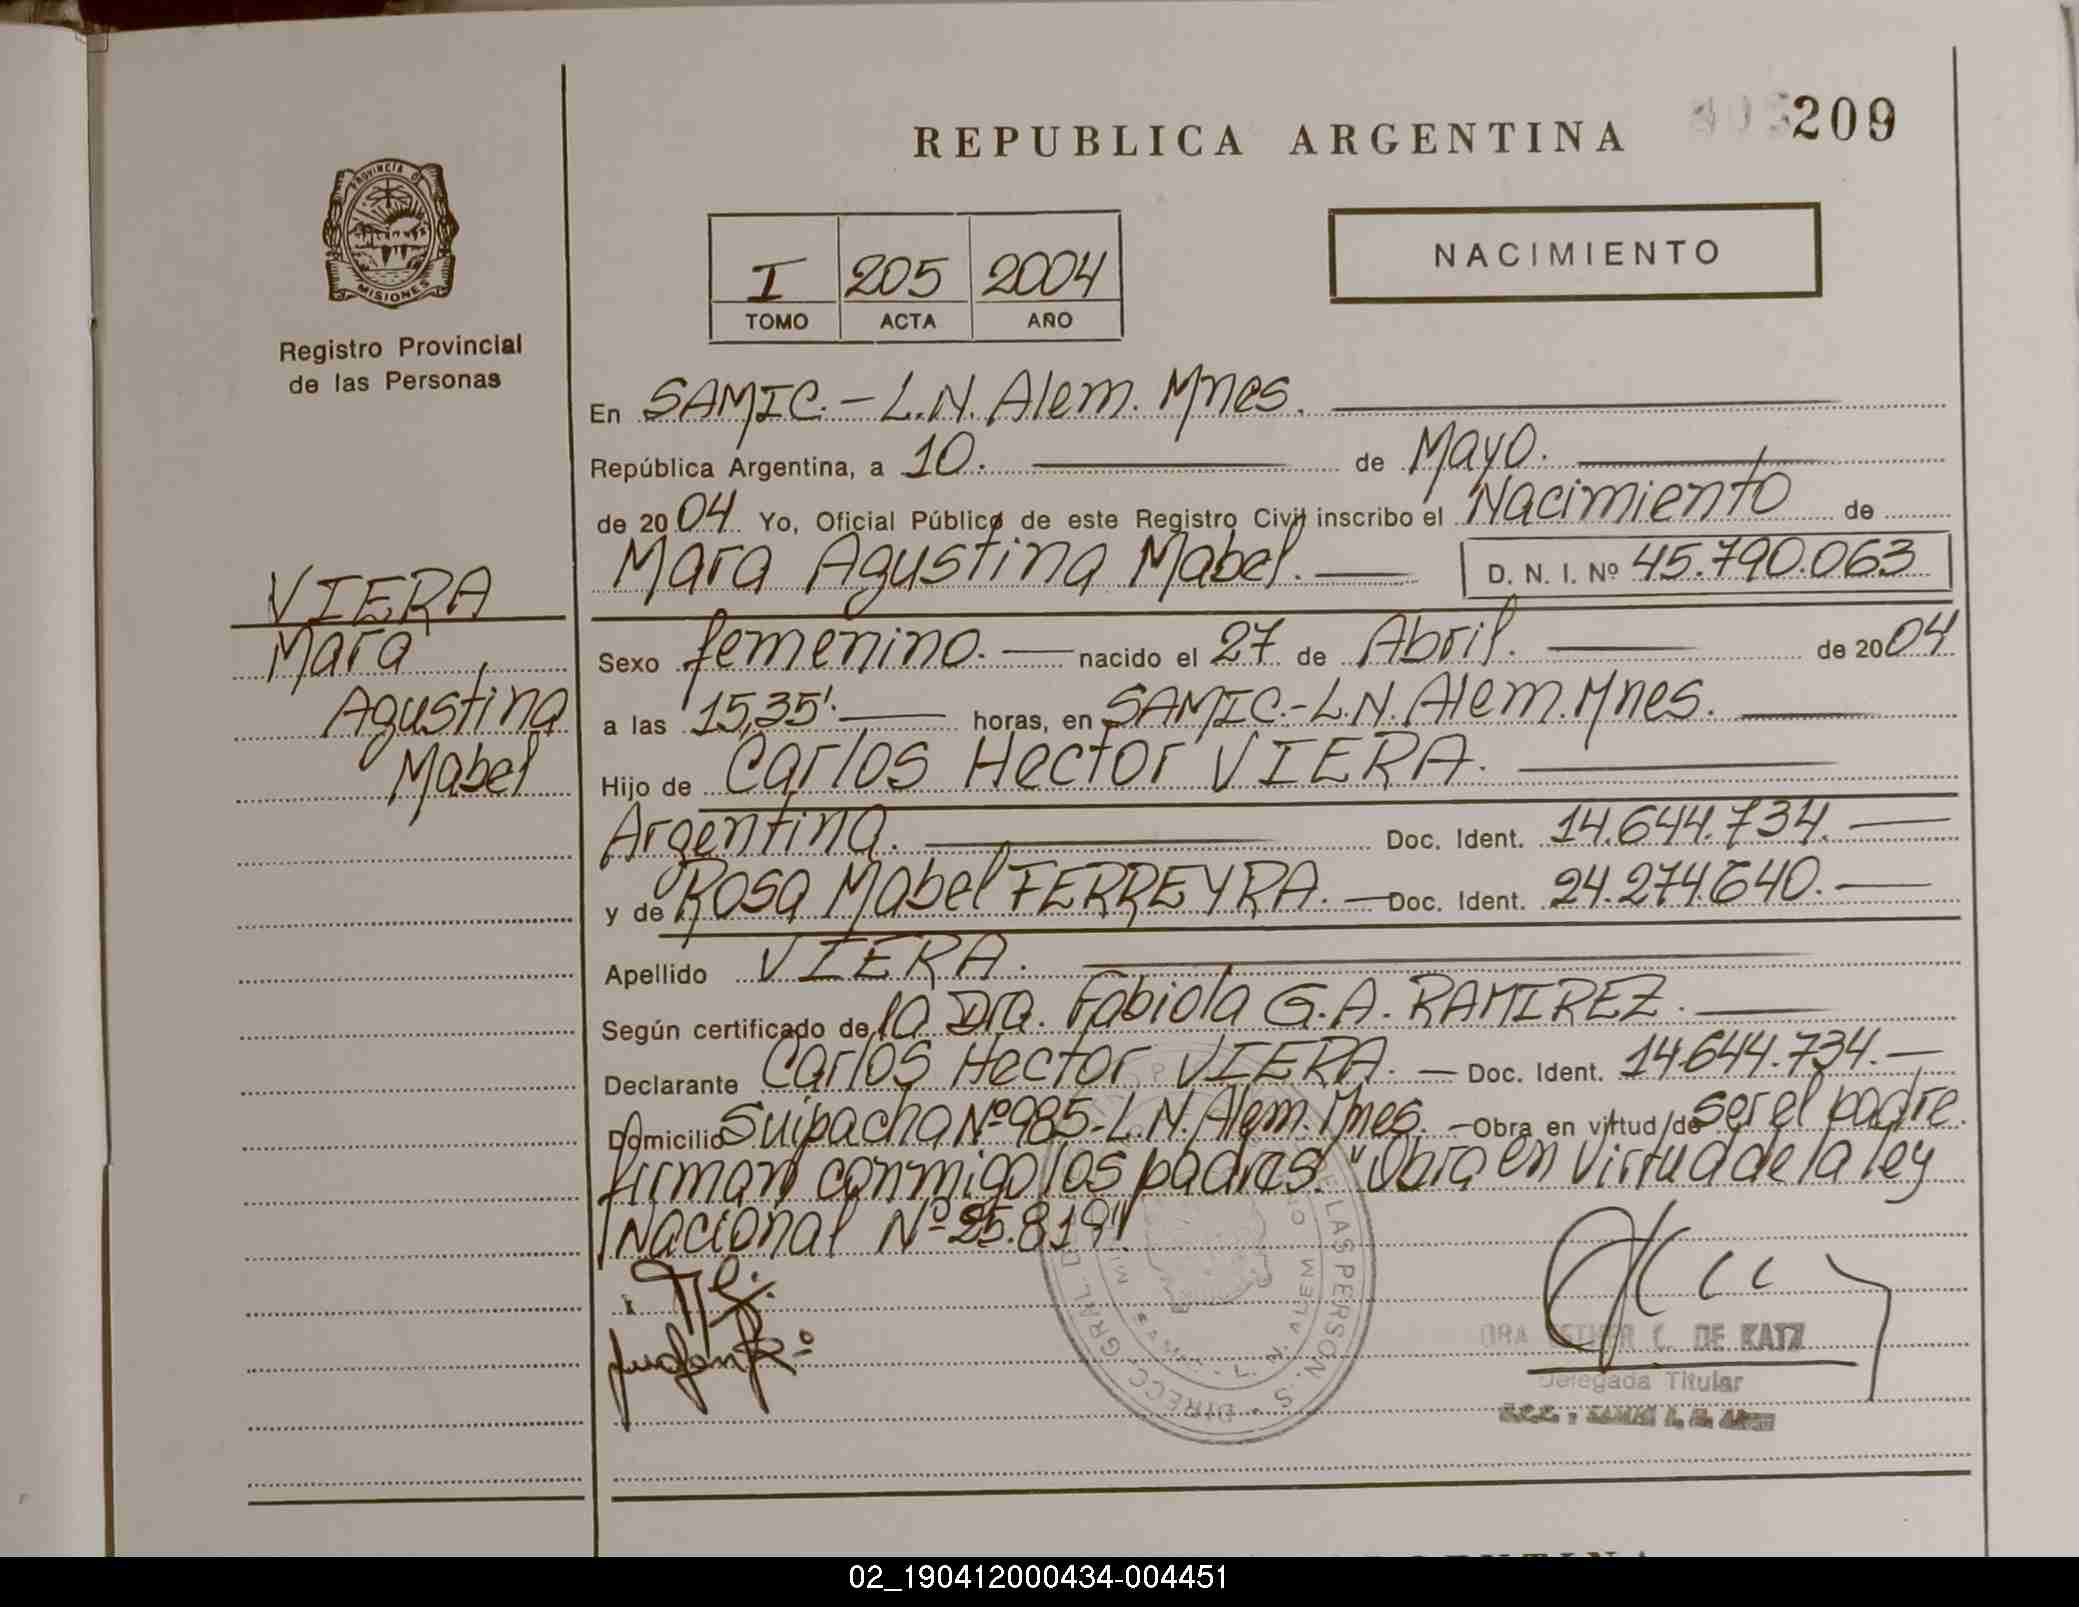 REPUBLICA ARGENTINA
209
PROVINCIA DE
MISIONES
Registro Provincial
de las Personas
I 205 2004
TOMO ACTA AÑO
NACIMIENTO
En SAMIC.-L.N. Alem. Mnes.
República Argentina, a 10. de Mayo.
de 2004 Yo, Oficial Público de este Registro Civil inscribo el Nacimiento de
Mara Agustina Mabel. D. N. I. Nº 45.790.063
VIERA
Mara
Agustina
Mabel
Sexo femenino. nacido el 27 de Abril. de 2004
a las 15,35'. horas, en SAMIC.-L.N. Alem. Mnes.
Hijo de Carlos Hector VIERA.
Argentina. Doc. Ident. 14.644.734.
y de Rosa Mabel FERREYRA. Doc. Ident. 24.274.640.
Apellido VIERA.
Según certificado de la Dra. Fabiola G.A. RAMIREZ.
Declarante Carlos Hector VIERA. Doc. Ident. 14.644.734.
Domicilio Suipacha Nº 985-L.N. Alem. Mnes. Obra en virtud de ser el padre.
firman conmigo los padres. "Obra en Virtud de la ley
Nacional Nº 25.819"
DRA ESTHER C. DE KATZ
Delegada Titular
02_190412000434-004451